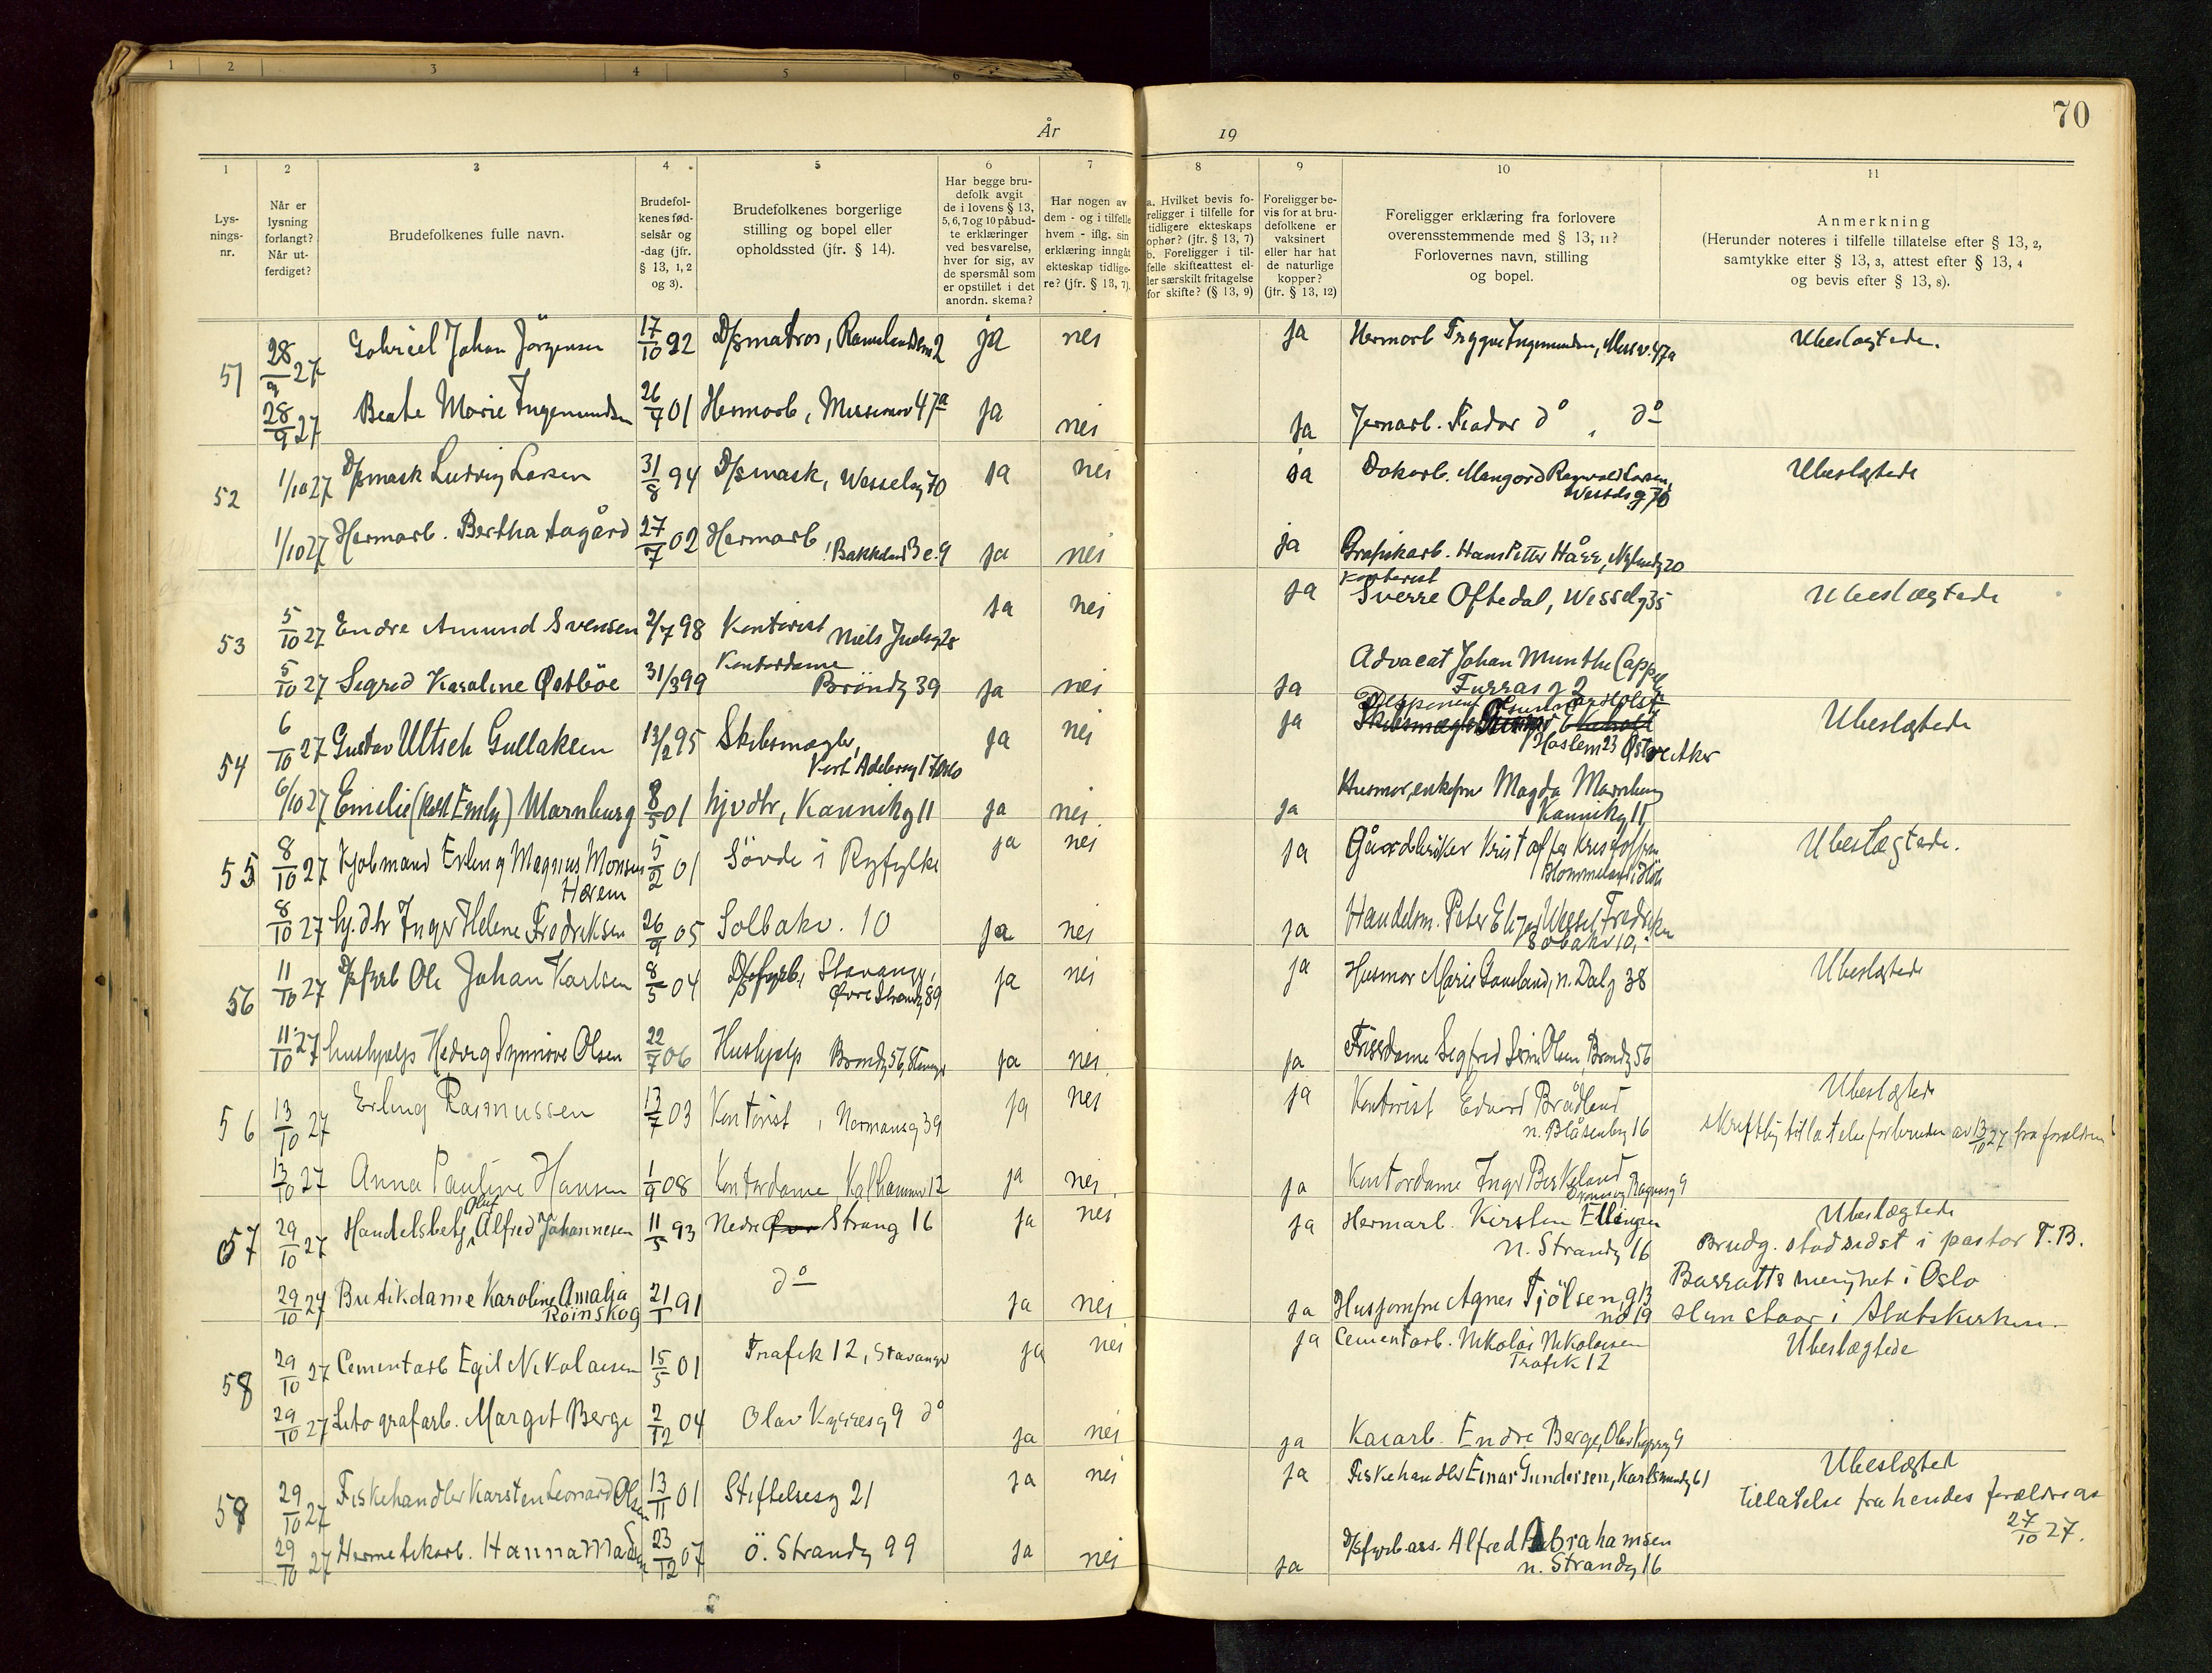 1 2 3 4 5 6
År 19
70
1 2 3 4 5 6 7 8 9 10 11
Lys-
nings-
nr.
Når er
lysning
forlangt?
Når ut-
ferdiget?
Brudefolkenes fulle navn.
Brudefol-
kenes fød-
selsår og
-dag (jfr.
§ 13, 1, 2
og 3).
Brudefolkenes borgerlige
stilling og bopel eller
opholdssted (jfr. § 14).
Har begge bru-
defolk avgit
de i lovens § 13,
5, 6, 7 og 10 påbud-
te erklæringer
ved besvarelse,
hver for sig, av
de spørsmål som
er opstillet i det
anordn. skema?
Har nogen av
dem - og i tilfelle
hvem - iflg. sin
erklæring inngåt
ekteskap tidlige-
re? (jfr. § 13, 7).
a. Hvilket bevis fo-
religger i tilfelle for
tidligere ekteskaps
ophør? (jfr. § 13, 7)
b. Foreligger i til-
felle skifteattest el-
ler særskilt fritagelse
for skifte? (§ 13, 9)
Foreligger be-
vis for at bru-
defolkene er
vaksinert
eller har hat
de naturlige
kopper?
(jfr. § 13, 12)
Foreligger erklæring fra forlovere
overensstemmende med § 13, 11?
Forlovernes navn, stilling
og bopel.
Anmerkning
(Herunder noteres i tilfelle tillatelse efter § 13, 2,
samtykke efter § 13, 3, attest efter § 13, 4
og bevis efter § 13, 8).
51 28/9 27 Gabriel Johan Jörgensen 17/10 92 D/smatros, 2 ja nei ja Hermarb Trygve Ingemundsen, 47a Ubeslægtede.
28/9 27 Beate Marie Ingemundsen 26/9 01 Hermarb, 47a ja nei ja Jernarb. do, do
52 1/10 27 D/smask Ludvig Larsen 31/8 94 D/smask, Wesselsg 70 ja nei ja Dokarb. Ragnvald Larsen, Ubeslægtede
Wesselsg 70
1/10 27 Hermarb. Bertha 27/7 02 Hermarb, 9 ja nei ja Grafiskarb. Hans Petter, Nylundg 20
53 5/10 27 Endre Amund Svensen 2/7 98 Kontorist Niels Juelsg 28 ja nei ja Kontorist
Sverre Oftedal, Wesselg 35 Ubeslægtede
5/10 27 Sigrid Karoline Østböe 31/3 99 Kontordame
Bröndg 39 ja nei ja Advocat Johan Munthe Cappelen
2
54 6/10 27 Gustav Ultsch Gullaksen 13/2 95 Skibsmægler,
Kort Adelersg 17 Oslo ja nei ja Disponent Holst
Haslem 23 Østre Aker Ubeslægtede
6/10 27 Emilie (kalt Emly) Marnburg 8/5 01 hjvdtr, Kannikg 11 ja nei ja Husmor, enkefru Magda Marnburg
Kannikg 11
55 8/10 27 Kjøbmand Erling Magnus Monsen
Herem 5/2 01 Søvde i Ryfylke ja nei ja Gårdbruker Kristoffer Kristoffersen
Ubeslægtede.
8/10 27 hj. dtr Inger Helene Fredriksen 26/9 05 Solbakv. 10 ja nei ja Handelsm. Peter Wessel Fredriksen
Solbakv 10,
56 11/10 27 D/sfyrb Ole Johan Karlsen 8/5 04 D/sfyrb, Stavanger,
Øvre Strandg 89 ja nei ja Husmor Marie, n. Dalg 38 Ubeslægtede
11/10 27 hushjælp Hedvig Synnøve Olsen 22/7 06 Hushjælp Bröndg 56, Stavanger ja nei ja Frisérdame Olsen, Bröndg 56
56 13/10 27 Erling Rasmussen 13/7 03 Kontorist, Normansg 39 ja nei ja Kontorist Edvard Brådland
n. Blåsenbg 16 Ubeslægtede
skriftlig tillatelse for bruden av 13/10 27 fra forældrene!
13/10 27 Anna Pauline Hansen 1/9 08 Kontordame, Kalhammerv 12 ja nei ja Kontordame Inger Birkeland
Ragnasg 9
57 29/10 27 Handelsbetj. Oluf Alfred Johannesen 11/5 93 Nedre Strandg 16 ja nei ja Hermarb. Kirsten Ellingsen
n. Strandg 16 Ubeslægtede
Brudg. stod sidst i pastor T.B.
Barratts menighet i Oslo
Hun staar i Statskirken.
29/10 27 Butikdame Karoline Amalia
Röinskog 21/1 91 do ja nei ja Husjomfru Agnes Tjölsen,
58 29/10 27 Cementarb Egil Nikolaisen 15/5 01 Trafik 12, Stavanger ja nei ja Cementarb. Nikolai Nikolaisen
Trafik 12 Ubeslægtede
29/10 27 Litografarb. Margit Berge 2/12 04 Olav Kyrresg 9 do ja nei ja Endre Berge, Olav Kyrresg 9
58 29/10 27 Fiskehandler Karsten Leonard Olsen 13/11 01 Stiftelsesg 21 ja nei ja Fiskehandler Einar Gundersen, Karlsmindeg 61 Ubeslægted
Tillatelse fra hendes forældre av
27/10 27.
29/10 27 Hermetikarb. Hanna Madsen 23/12 07 Ö. Strandg 99 ja nei ja D/sfyrb ass. Alfred Abrahamsen
n. Strandg 16